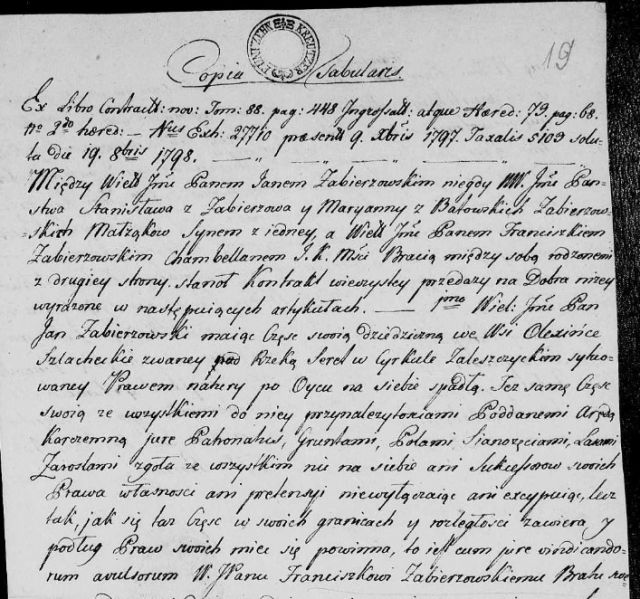 EIN KREUTZER
19
Copia Tabularis.
Ex Libro Contractt: nov: Tom: 88. pag: 448 Ingrossatt: atque Hæred: 73. pag: 68.
nro 2do hæred: — Nus Exh: 27710 præsentt 9. Xbris 1797. Taxalis 5103 solu-
ta die 19. 8bris 1798.
Między Wiell Jmć Panem Janem Zabierzowskim niegdy WW. Jmć Pań-
stwa Stanisława z Zabierzowa y Maryanny z Batowskich Zabierzow-
-skich Małżąków Synem z iedney, a Wiell Jmć Panem Franciszkiem
Zabierzowskim Chambellanem J. K. Mści Bracią między sobą rodzonemi
z drugiey strony. stanoł Kontrakt wieczystey przedazy na Dobra niżey
wyrażone w następuiących artykułach. — 1mo Wiel: Jmć Pan
Jan Zabierzowski maiąc Częsc swoią dziedziczną we Wsi Olexińce
Szlacheckie zwaney pod Rzeką Seret w Cyrkule Zaleszczyckim sytuo-
waney Prawem natury po Oycu na siebie spadłą. Tez samę Częsc
swoią ze wszystkiemi do niey przynalezytosciami Poddanemi Arędą
Karczemną jure Patronatus, Gruntami, Polami Sianozęciami, Lasami
Zaroslami zgoła ze wszystkim nic na siebie ani Sukcessorow swoich
Prawa własnosci ani pretensyi niewyłączaiąc ani excypuiąc, lecz
tak, jak się taz Częsc w swoich granicach y rozległosci zawiera y
podług Praw swoich miec się powinna, to iest cum jure vindicando-
rum avulsorum W. JPanu Franciszkowi Zabierzowskiemu Bratu